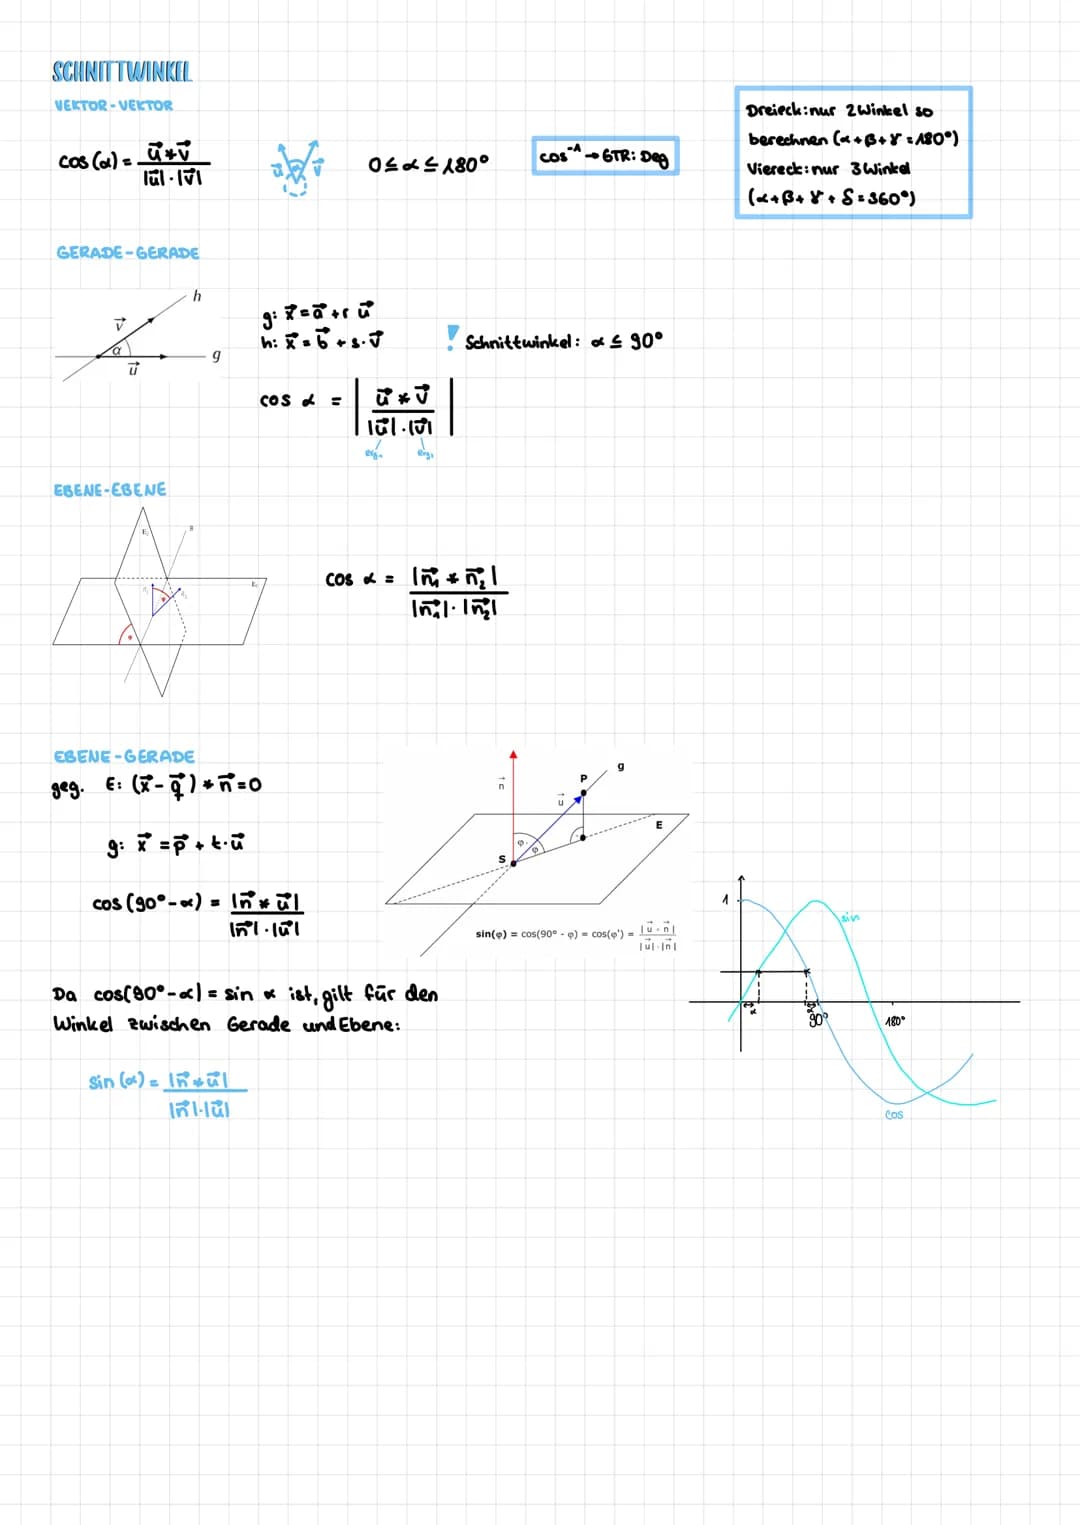 SCHNITTWINKEL
VEKTOR-VEKTOR
cos(α) = u⃗ * v⃗ / |u⃗| · |v⃗|
u⃗ α v⃗
0 ≤ α ≤ 180°
cos⁻¹ → GTR: Deg
Dreieck: nur 2 Winkel so
berechnen (α+β+γ = 180°)
Viereck: nur 3 Winkel
(α+β+γ+δ = 360°)
GERADE-GERADE
h
v⃗
α
u⃗
g
g: x⃗ = a⃗ + r u⃗
h: x⃗ = b⃗ + s · v⃗
! Schnittwinkel: α ≤ 90°
cos α = | u⃗ * v⃗ / |u⃗| · |v⃗| |
EBENE-EBENE
E₂
g
E₁
n₁
φ
n₂
φ
cos α = |n₁⃗ * n₂⃗| / |n₁⃗| · |n₂⃗|
EBENE-GERADE
geg. E: (x⃗ - q⃗) * n⃗ = 0
g: x⃗ = p⃗ + t · u⃗
cos(90°-α) = |n⃗ * u⃗| / |n⃗| · |u⃗|
n⃗
P
g
u⃗
E
φ'
φ
S
sin(φ) = cos(90° - φ) = cos(φ') = |u⃗ · n⃗| / |u⃗| · |n⃗|
1
sin
α
α
90°
180°
cos
Da cos(90°-α) = sin α ist, gilt für den
Winkel zwischen Gerade und Ebene:
sin(α) = |n⃗ * u⃗| / |n⃗| · |u⃗|